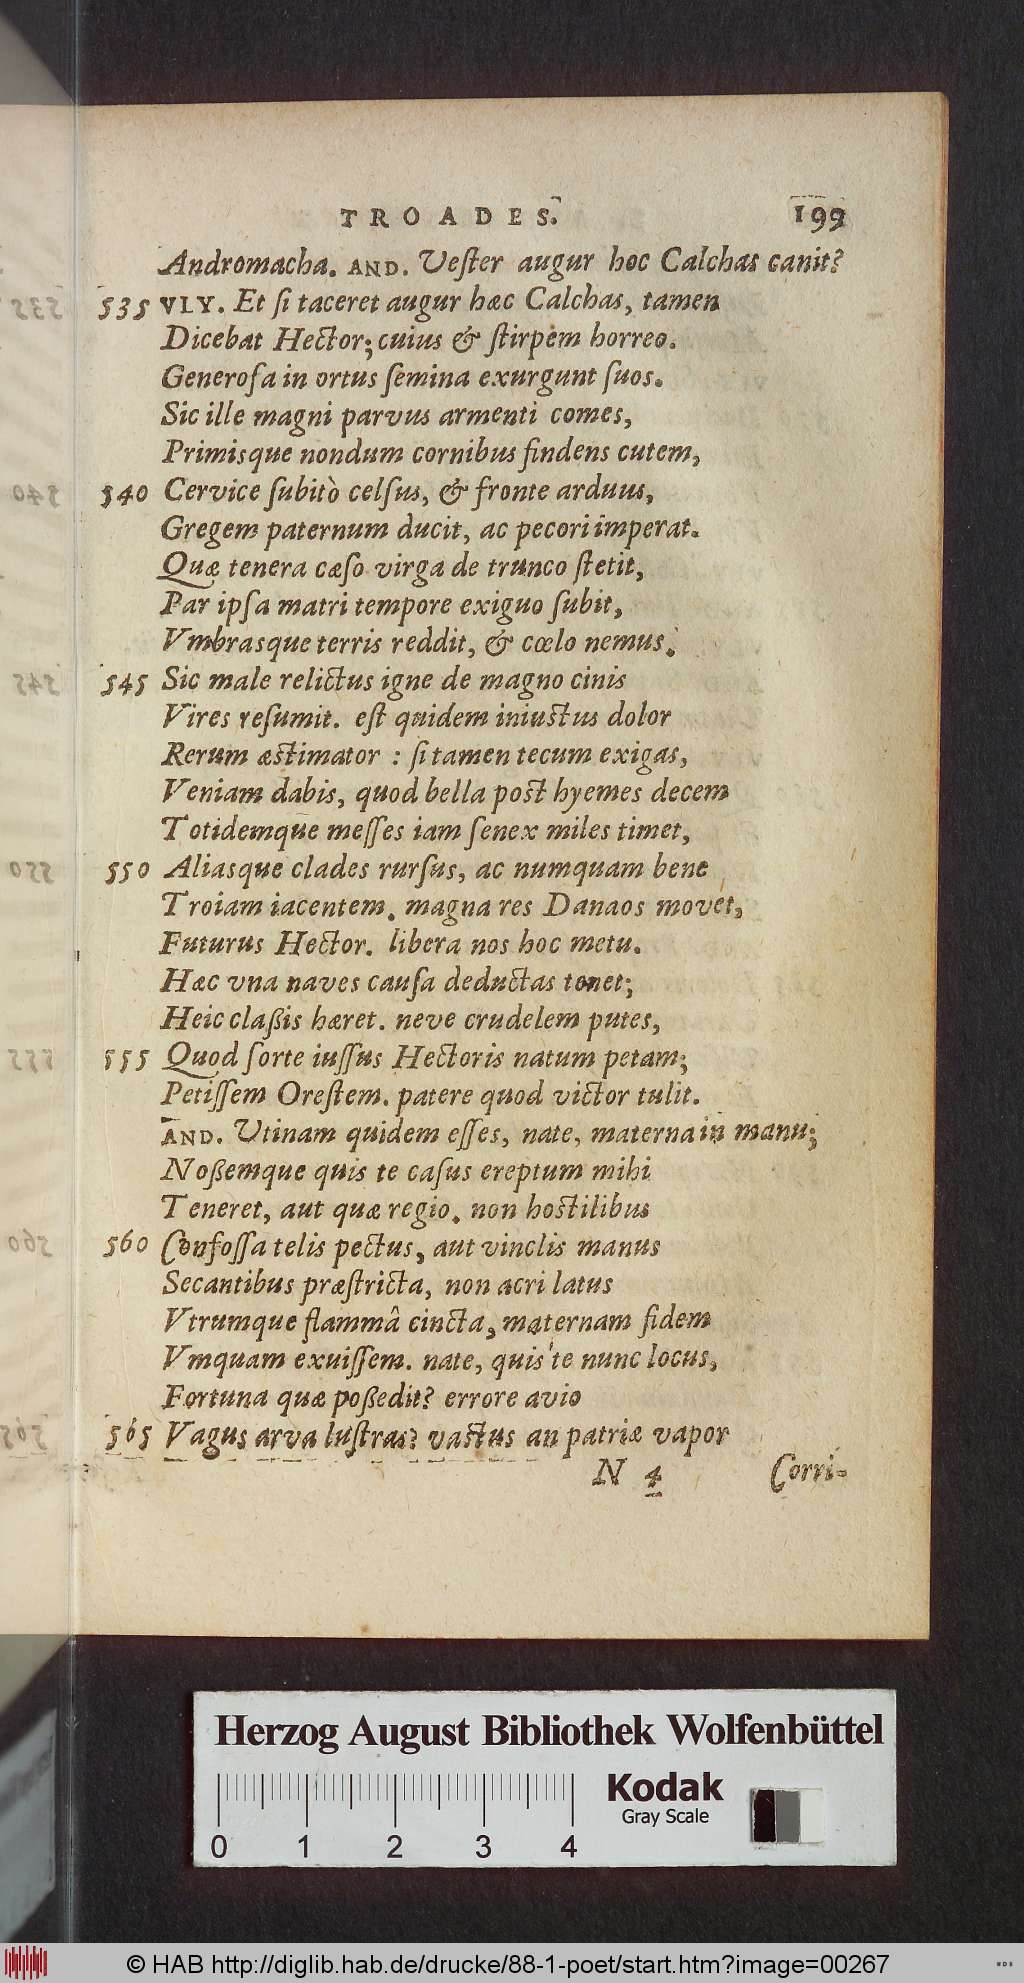 TROADES. 199
Andromacha. AND. Veſter augur hoc Calchas canit?
535 VLY. Et ſi taceret augur hæc Calchas, tamen
Dicebat Hector; cuius & ſtirpem horreo.
Generoſa in ortus ſemina exurgunt ſuos.
Sic ille magni parvus armenti comes,
Primisque nondum cornibus findens cutem,
540 Cervice ſubitò celſus, & fronte arduus,
Gregem paternum ducit, ac pecori imperat.
Quæ tenera cæſo virga de trunco ſtetit,
Par ipſa matri tempore exiguo ſubit,
Vmbrasque terris reddit, & cœlo nemus.
545 Sic male relictus igne de magno cinis
Vires reſumit. eſt quidem iniuſtus dolor
Rerum æſtimator : ſi tamen tecum exigas,
Veniam dabis, quod bella poſt hyemes decem
Totidemque meſſes iam ſenex miles timet,
550 Aliasque clades rurſus, ac numquam bene
Troiam iacentem. magna res Danaos movet,
Futurus Hector. libera nos hoc metu.
Hæc vna naves cauſa deductas tenet;
Heic claßis hæret. neve crudelem putes,
555 Quod ſorte iuſſus Hectoris natum petam;
Petiſſem Oreſtem. patere quod victor tulit.
AND. Vtinam quidem eſſes, nate, materna in manu;
Noßemque quis te caſus ereptum mihi
Teneret, aut quæ regio. non hoſtilibus
560 Confoſſa telis pectus, aut vinclis manus
Secantibus præſtricta, non acri latus
Vtrumque flammâ cincta, maternam fidem
Vmquam exuiſſem. nate, quis te nunc locus,
Fortuna quæ poßedit? errore avio
565 Vagus arva luſtras? vaſtus an patriæ vapor
N 4 Corri-
Herzog August Bibliothek Wolfenbüttel
Kodak
Gray Scale
0 1 2 3 4
© HAB http://diglib.hab.de/drucke/88-1-poet/start.htm?image=00267